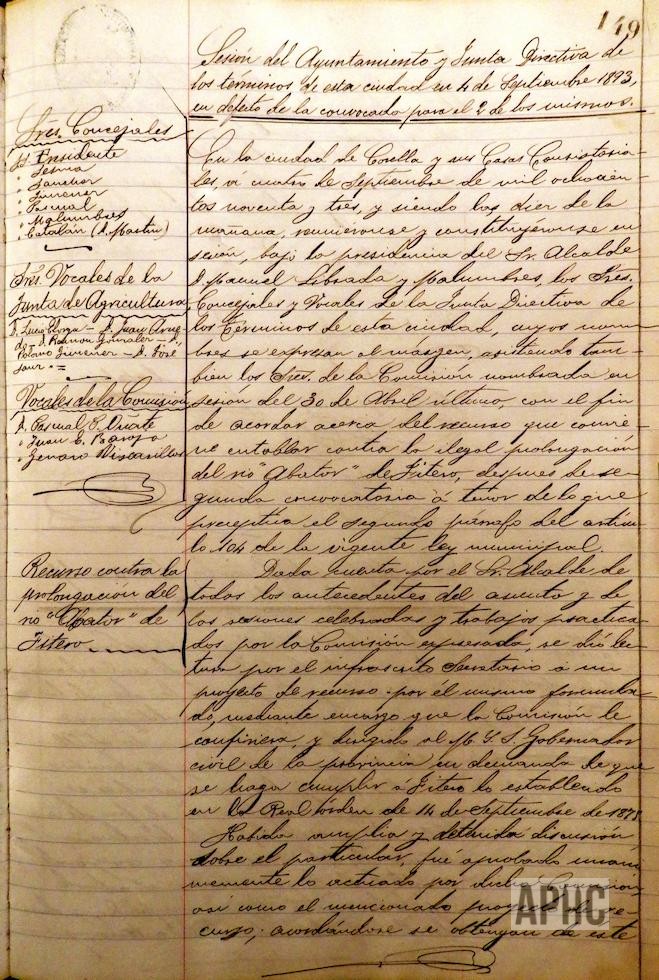 149
Sesión del Ayuntamiento y Junta Directiva de
los términos de esta ciudad en 4 de Septiembre 1893,
en defecto de la convocada para el 2 de los mismos.
Sres. Concejales
Sr. Presidente
" Sesma
" Sanchez
" Jimenez
" Pascual
" Malumbres
" Catalán (D. Martin)
Sres. Vocales de la
Junta de Agricultura
D. Juan
D. Ramon Gonzalez - D.
Jimenez - D. José
Sanz
Vocales de la Comisión
D. Pascual G. Oñate
" Juan C.
" Genaro Viscasillas
Recurso contra la
prolongación del
rio "Abatór" de
Fitero
En la ciudad de Corella y sus Casas Consistoria-
les, á cuatro de Septiembre de mil ochocien-
tos noventa y tres, y siendo las diez de la
mañana, reunieronse y constituyéronse en
sesión, bajo la presidencia del Sr. Alcalde
D. Manuel Librada y Malumbres, los Sres.
Concejales y Vocales de la Junta Directiva de
los Términos de esta ciudad, cuyos nom-
bres se expresan al márgen, asistiendo tam-
bien los Sres. de la Comisión nombrada en
sesion del 30 de Abril último, con el fin
de acordar acerca del recurso que convie-
ne entablar contra la ilegal prolongación
del rio "Abatór" de Fitero, despues de se-
gunda convocatoria á tenor de lo que
preceptúa el segundo párrafo del artícu-
lo 104 de la vigente ley municipal.
Dada cuenta por el Sr. Alcalde de
todos los antecedentes del asunto y de
las sesiones celebradas y trabajos practica-
dos por la Comisión expresada, se dió lec-
tura por el infrascrito Secretario á un
proyecto de recurso por el mismo formula-
do, mediante encargo que la Comisión le
confiriera, y dirigido al M. Y. S. Gobernador
civil de la provincia en demanda de que
se haga cumplir á Fitero lo establecido
en la Real órden de 14 de Septiembre de
Habida amplia y detenida discusión
sobre el particular, fué aprobado unani-
memente lo actuado por dicha Comisión,
asi como el mencionado proyecto de re-
curso; acordándose se obtengan de este
APHC